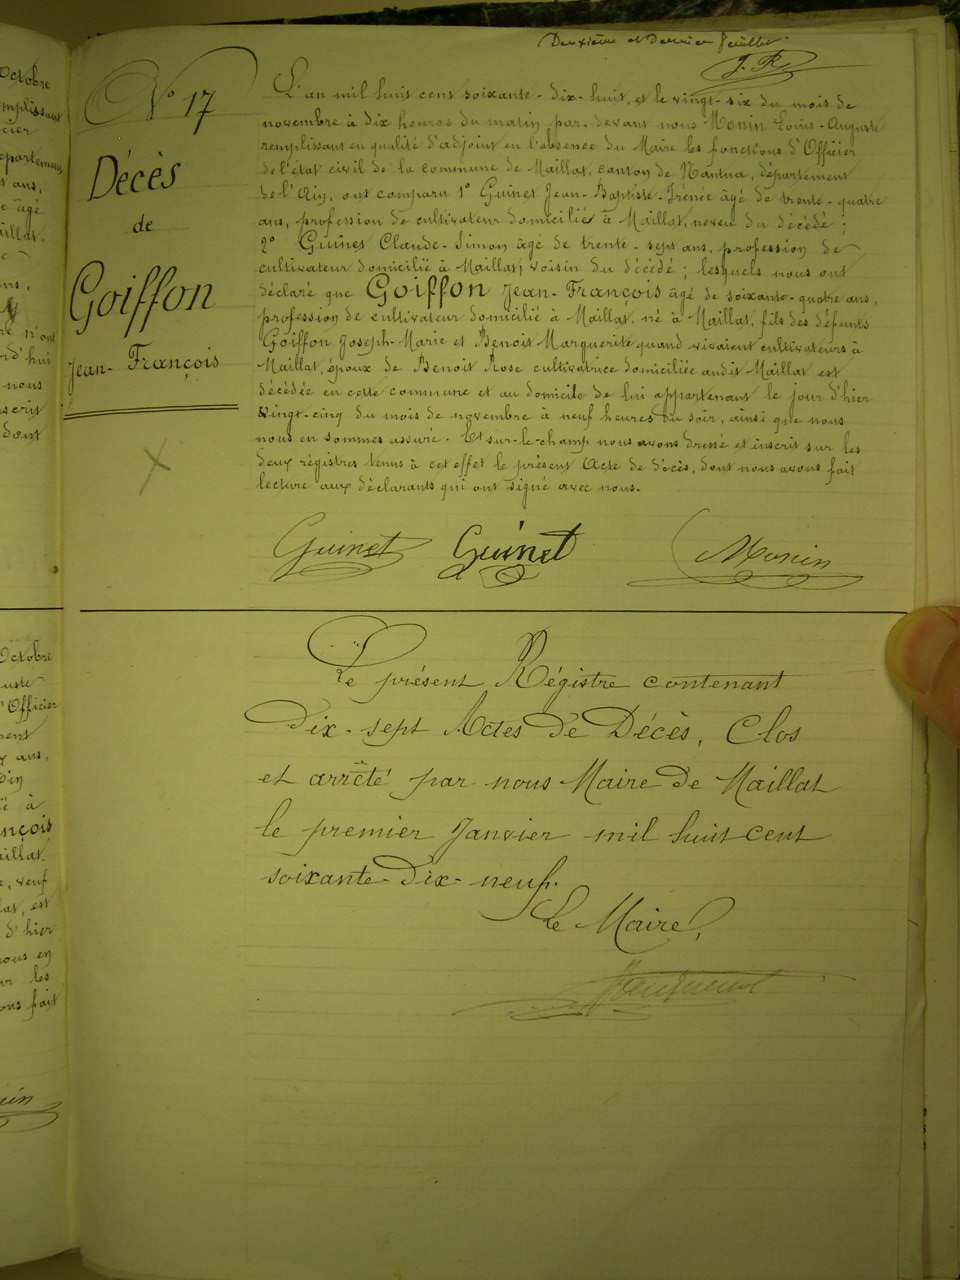 Deuxième et Dernier feuillet.
N° 17
Décès
de
Goiffon
Jean-François
L'an mil huit cent soixante-dix-huit, et le vingt-six du mois de
novembre à dix heures du matin par-devant nous Monin Louis-Auguste
remplissant en qualité d'adjoint en l'absence du Maire les fonctions d'Officier
de l'état civil de la commune de Maillat, canton de Nantua, département
de l'Ain, ont comparu 1° Guinet Jean-Baptiste-Irénée âgé de trente-quatre
ans, profession de cultivateur domicilié à Maillat, neveu du décédé;
2° Guinet Claude-Simon âgé de trente-sept ans, profession de
cultivateur domicilié à Maillat, voisin du décédé; lesquels nous ont
déclaré que Goiffon Jean-François âgé de soixante-quatre ans,
profession de cultivateur domicilié à Maillat, né à Maillat, fils des défunts
Goiffon Joseph-Marie et Benoit Marguerite quand vivaient cultivateurs à
Maillat, époux de Benoit Rose cultivatrice domiciliée audit Maillat est
décédée en cette commune et au domicile de lui appartenant le jour d'hier
vingt-cinq du mois de novembre à neuf heures du soir, ainsi que nous
nous en sommes assuré. Et sur-le-champ nous avons dressé et inscrit sur les
deux régistres tenus à cet effet le présent Acte de décès, dont nous avons fait
lecture aux déclarants qui ont signé avec nous.
Guinet Guinet Monin
Le présent Régistre contenant
dix-sept Actes de Décès, Clos
et arrêté par nous Maire de Maillat
le premier Janvier mil huit cent
soixante-dix-neuf.
Le Maire,